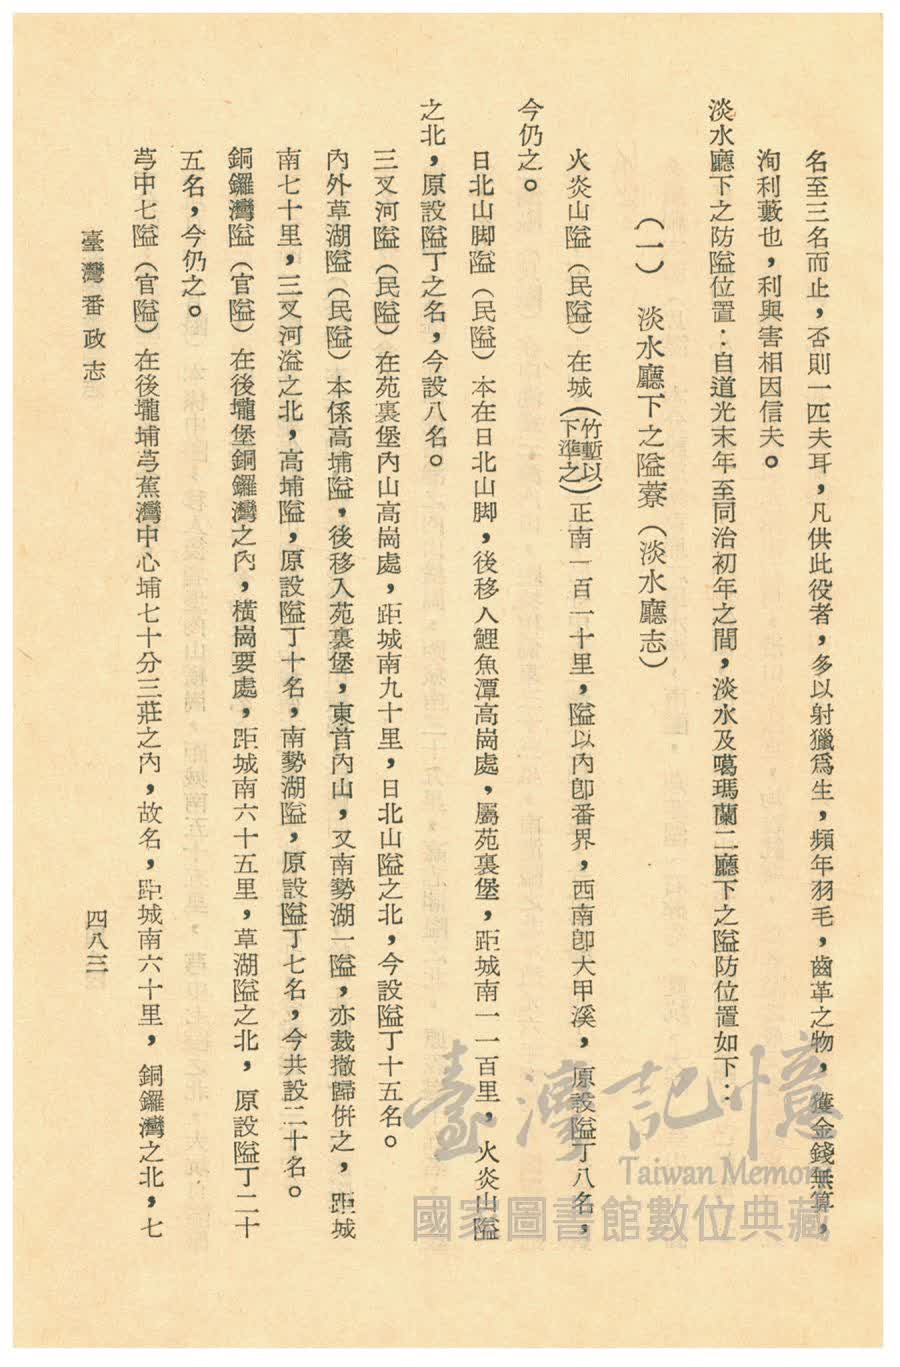 名至三名而止，否則一匹夫耳，凡供此役者，多以射獵爲生，頻年羽毛，齒革之物，獲金錢無算，
洵利藪也，利與害相因信夫。
淡水廳下之防隘位置：自道光末年至同治初年之間，淡水及噶瑪蘭二廳下之隘防位置如下：
（一）　淡水廳下之隘藔（淡水廳志）
火炎山隘（民隘）在城（竹塹以下準之）正南一百一十里，隘以內卽番界，西南卽大甲溪，原設隘丁八名，
今仍之。
日北山脚隘（民隘）本在日北山脚，後移入鯉魚潭高崗處，屬苑裏堡，距城南一一百里，火炎山隘
之北，原設隘丁之名，今設八名。
三叉河隘（民隘）在苑裏堡內山高崗處，距城南九十里，日北山隘之北，今設隘丁十五名。
內外草湖隘（民隘）本係高埔隘，後移入苑裏堡，東首內山，又南勢湖一隘，亦裁撤歸併之，距城
南七十里，三叉河溢之北，高埔隘，原設隘丁十名，南勢湖隘，原設隘丁七名，今共設二十名。
銅鑼灣隘（官隘）在後壠堡銅鑼灣之內，橫崗要處，距城南六十五里，草湖隘之北，原設隘丁二十
五名，今仍之。
芎中七隘（官隘）在後壠埔芎蕉灣中心埔七十分三莊之內，故名，距城南六十里，銅鑼灣之北，七
臺灣番政志
四八三
臺灣記憶
Taiwan Memory
國家圖書館數位典藏